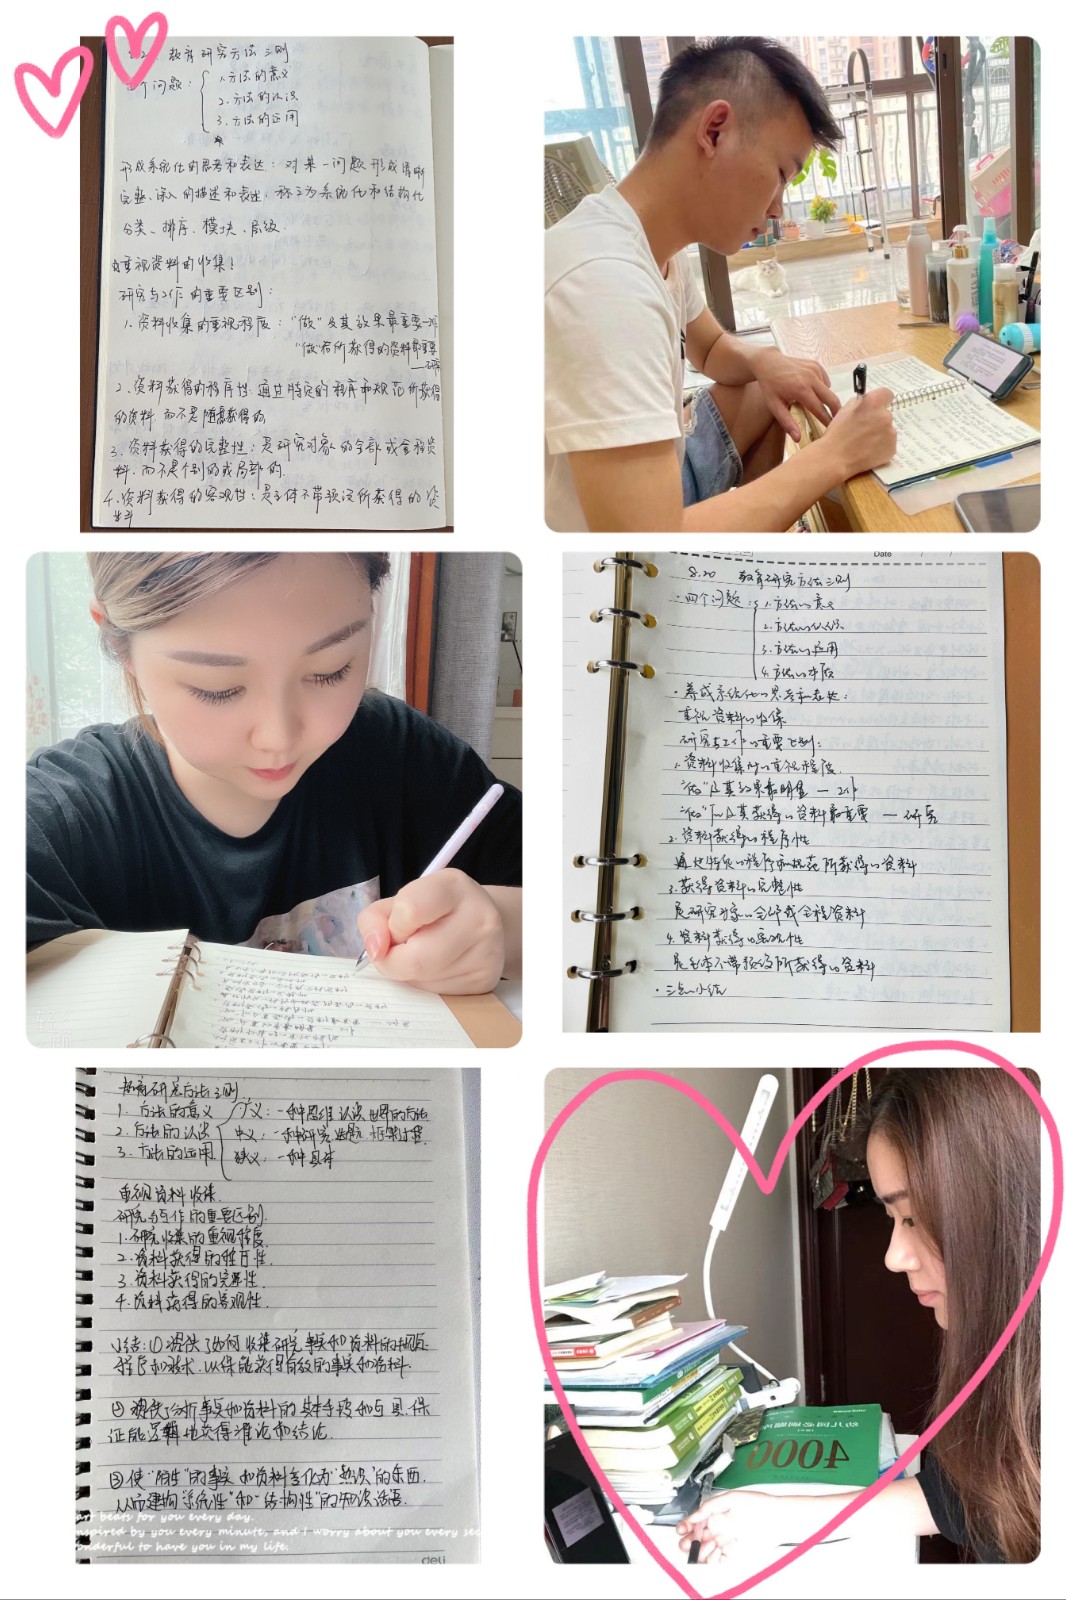 教育研究方法三则
个问题：
1.方法的意义
2.方法的认识
3.方法的运用
形成系统化的思考和表达：对某一问题形成清晰
完整、深入的描述和表达，称之为系统化和结构化
分类、排序、模块、层级
重视资料的收集：
研究与工作的重要区别：
1、资料收集的重视程度："做"及其效果最重要—工作
"做"后所获得的资料最重要
—研究
2、资料获得的程序性：通过特定的程序和规范所获得
的资料，而不是随意获得的
3、资料获得的完整性：是研究对象的全部或全程资
料，而不是个别的或局部的
4、资料获得的客观性：是主体不带预设所获得的资
料
Date
8.20 教育研究方法三则
·四个问题：1.方法的意义
2.方法的认识
3.方法的运用
4.方法的
·养成系统化的思考和表达：
重视资料的收集
研究与工作的重要区别：
1.资料收集的重视程度
"做"及其效果最明显—工作
"做"及其获得的资料最重要—研究
2.资料获得的程序性
通过特定的程序和规范所获得的资料
3.获得资料的完整性
是研究对象的全部或全程资料
4.资料获得的客观性
是主体不带预设所获得的资料
·三点小结
教育研究方法三则
1.方法的意义 广义：一种思维认识世界的方法
2.方法的认识 中义：一种研究选题
3.方法的运用 狭义：一种具体
重视资料收集
研究与工作的重要区别
1.研究收集的重视程度
2.资料获得的程序性
3.资料获得的完整性
4.资料获得的客观性
小结：①提供了如何收集研究事实和资料的规范
程序和技术，以保能获得有效的事实和资料
②提供了分析事实和资料的基本手段和工具，保
证能逻辑地获得准论和结论
③使"陌生"的事实和资料变化为"熟识"的东西
从而建构"系统性"和"结构性"的知识话语
art beats for you every day.
nspired by you every minute, and I worry about you every sec
onderful to have you in my life.
deli
4000